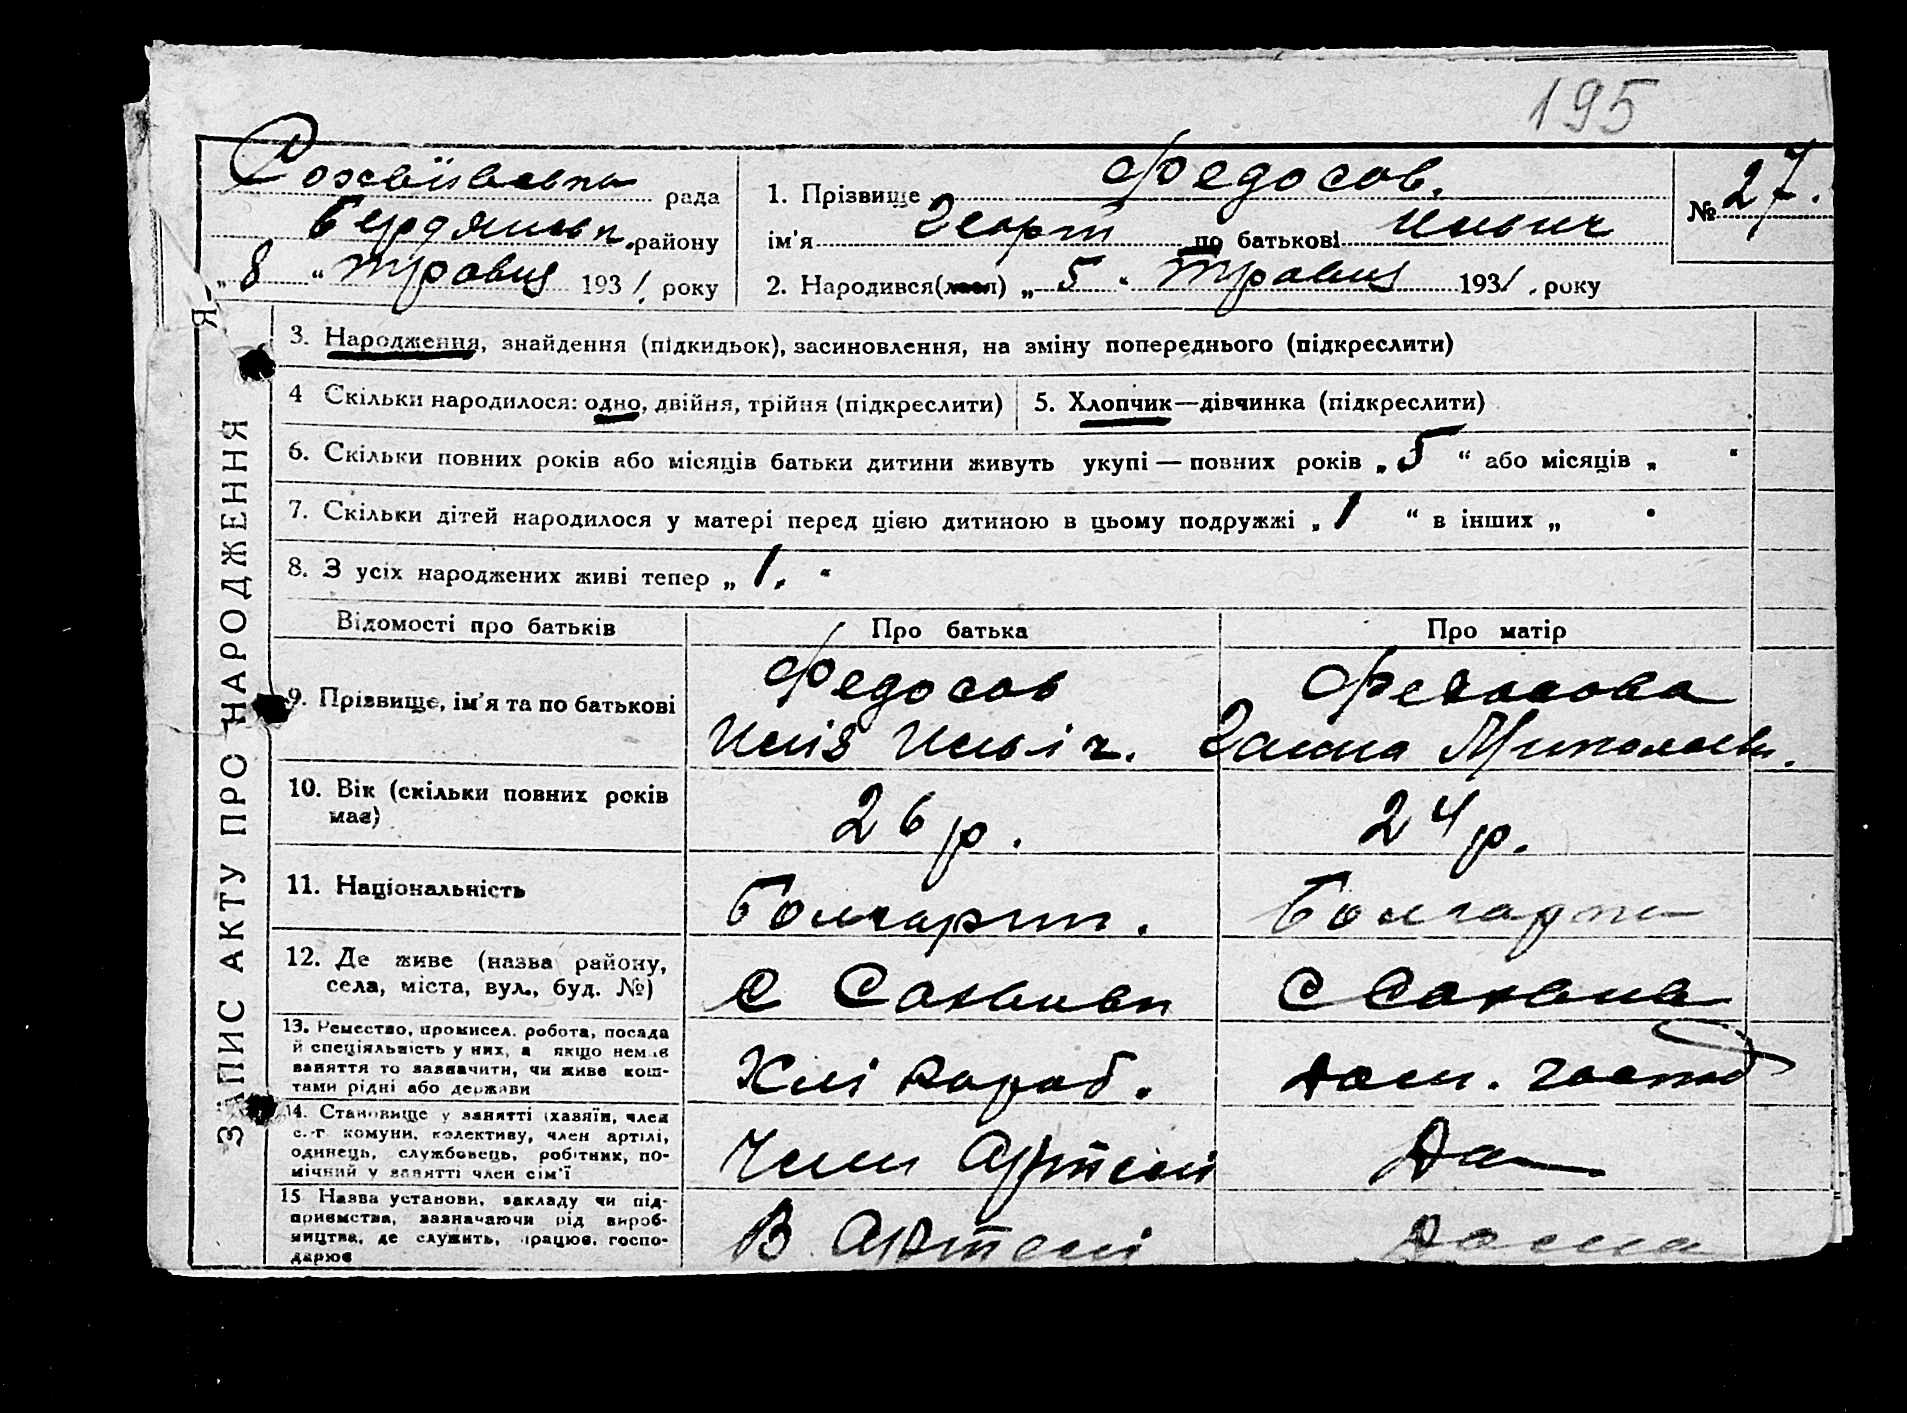 195
рада
Федосов.
1. Прізвище
№ 27.
району
ім'я Георг по батькові Ильич
„ 8 “ травня 1931. року
2. Народився(лася) „ 5 “ травня 1931. року
3. Народження, знайдення (підкидьок), засиновлення, на зміну попереднього (підкреслити)
4 Скільки народилося: одно, двійня, трійня (підкреслити)
5. Хлопчик—дівчинка (підкреслити)
6. Скільки повних років або місяців батьки дитини живуть укупі — повних років „ 5 “ або місяців „ “
7. Скільки дітей народилося у матері перед цією дитиною в цьому подружжі „ 1 “ в інших „ “
8. З усіх народжених живі тепер „ 1. “
ЗАПИС АКТУ ПРО НАРОДЖЕННЯ
Відомості про батьків
Про батька
Про матір
9. Прізвище, ім'я та по батькові
Федосов
Ілія Ильіч.
Федосова
Ганна Миколаєв.
10. Вік (скільки повних років
має)
26 р.
24 р.
11. Національність
Болгарин.
Болгарка
12. Де живе (назва району,
села, міста, вул., буд. №)
С
С
13. Ремество, промисел. робота, посада
й спеціяльність у них, а якщо немає
заняття то зазначити, чи живе кош-
тами рідні або держави
Хліборroб.
дом. господ
14. Становище у занятті (хазяїн, член
с.-г. комуни, колективу, член артілі,
одинець, службовець, робітник, по-
мічний у занятті член сім'ї
Член Артелі
До—
15 Назва установи, закладу чи під-
приємства, зазначаючи рід вироб-
ництва, де служить, працює, госпо-
дарює
В Артелі
Дома